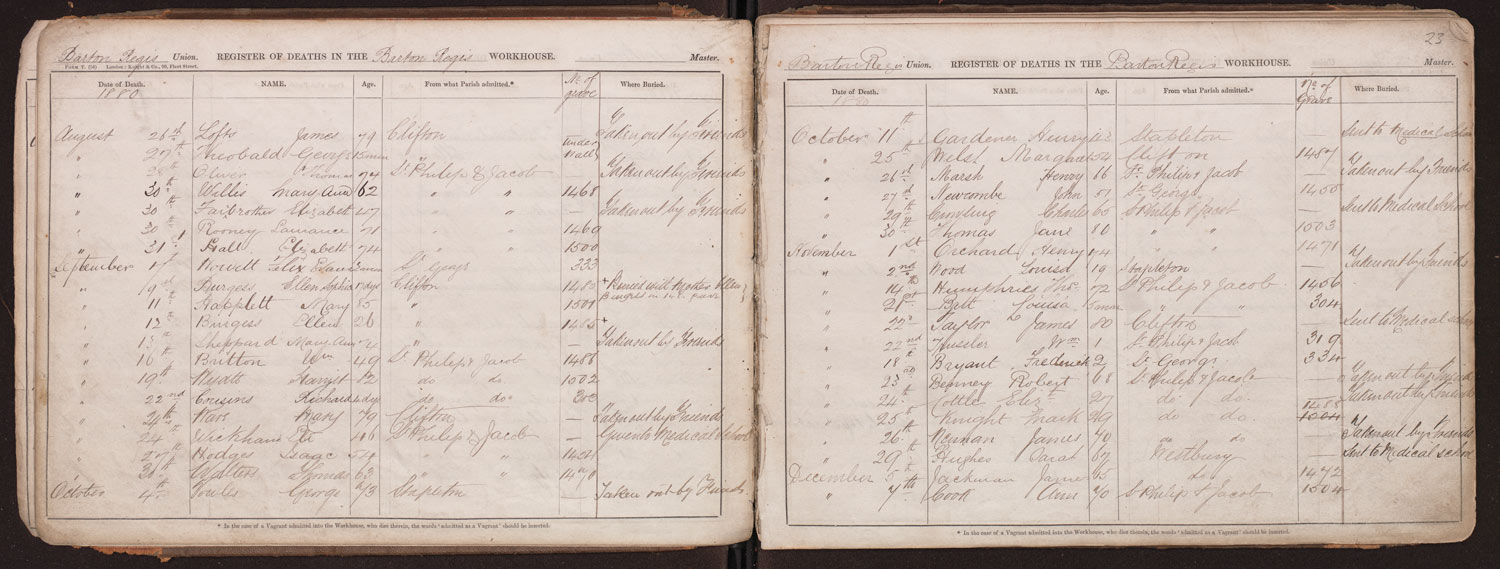 Barton Regis Union. REGISTER OF DEATHS IN THE Barton Regis WORKHOUSE. Master.
FORM V. (58) London: Knight & Co., 90, Fleet Street.
Date of Death. NAME. Age. From what Parish admitted.* No. of grave Where Buried.
1880
August 26th Lofts James 79 Clifton under Wall Taken out by Friends
" 27th Theobald George 15 min "
" Oliver Thomas 74 St Philip & Jacob — Taken out by Friends
" 30th Willis Mary Ann 62 " " 1468
" 30th Fairbrother Elizabeth 47 " " — Taken out by Friends
" 30th Rooney Laurance 71 " " 1469
" 31st Hall Elizabeth 74 " " 1500
September 1st Rowett Felix St Georges 333
" Burgess Ellen Sophia Clifton 1485 * Buried with Mother Ellen Burgess in same grave
" 11th Happlett Mary 85 " 1501
" 12th Burgess Ellen 26 " 1485 *
" 13th Sheppard Mary Ann " — Taken out by Friends
" 16th Britton Wm 49 St Philip & Jacob 1488
" 19th Wyatt Harriet 82 do do 1502
" 22nd Cousins Richard 4 dys do do 300
" 24th Mary 79 Clifton — Taken out by Friends
" 24th Wickham 46 St Philip & Jacob — Given to Medical School
" 27th Hodges Isaac " " 1424
" 30th Walters Thomas 63 " " 1470
October 4th Vowles George 73 Stapleton — Taken out by Friends
* In the case of a Vagrant admitted into the Workhouse, who dies therein, the words "admitted as a Vagrant" should be inserted.
23
Barton Regis Union. REGISTER OF DEATHS IN THE Barton Regis WORKHOUSE. Master.
Date of Death. NAME. Age. From what Parish admitted.* No. of Grave Where Buried.
1880
October 11th Gardener Henry Stapleton — Sent to Medical School
" 25th Margaret 54 Clifton 1487
" 26th Marsh Henry 16 St Philip & Jacob — Taken out by Friends
" 27th Newcombe John 51 St George 1455
" 29th Cowling Charles 65 St Philip & Jacob — Sent to Medical School
" 30th Thomas Jane 80 " " 1503
November 1st Orchard Henry 74 " " 1471
" 2nd Wood Louisa 19 Stapleton — Taken out by Friends
" 14th Humphries Thos 72 St Philip & Jacob 1456
" 21st Britt Louisa 5 min " " 304
" 22nd Taylor James 80 Clifton — Sent to Medical School
" 22nd Wm 1 St Philip & Jacob 319
" 18th Bryant Frederick 2 St Georges 334
" 23rd Denney Robert 68 St Philip & Jacob — Taken out by Friends
" 24th Cottle Elizth 27 do do — Taken out by Friends
" 25th Knight 29 do do 1488 1504
" 26th Newman James 70 do do — Taken out by Friends
" 29th Hughes Sarah 67 Westbury — Sent to Medical School
December 5th Jackman James 65 do 1472
" 7th Cook Ann 70 St Philip & Jacob 1504
* In the case of a Vagrant admitted into the Workhouse, who dies therein, the words "admitted as a Vagrant" should be inserted.